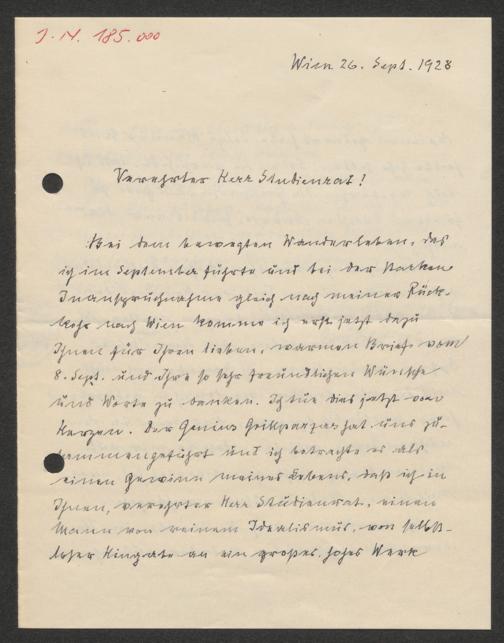 J. N. 185.000
Wien 26. Sept. 1928
Verehrter Herr Studienrat!
Bei dem bewegten Wanderleben, das
ich im September führte und bei der starken
Inanspruchnahme gleich nach meiner Rück-
kehr nach Wien komme ich erst jetzt dazu
Ihnen für Ihren lieben, warmen Brief vom
8. Sept. und Ihre so sehr freundlichen Wünsche
und Worte zu danken. Ich tue dies jetzt von
Herzen. Der Genius Grillparzers hat uns zu-
sammengeführt und ich betrachte es als
einen Gewinn meines Lebens, daß ich in
Ihnen, verehrter Herr Studienrat, einen
Mann von reinem Idealismus, von selbst-
loser Hingabe an ein großes, hohes Werk